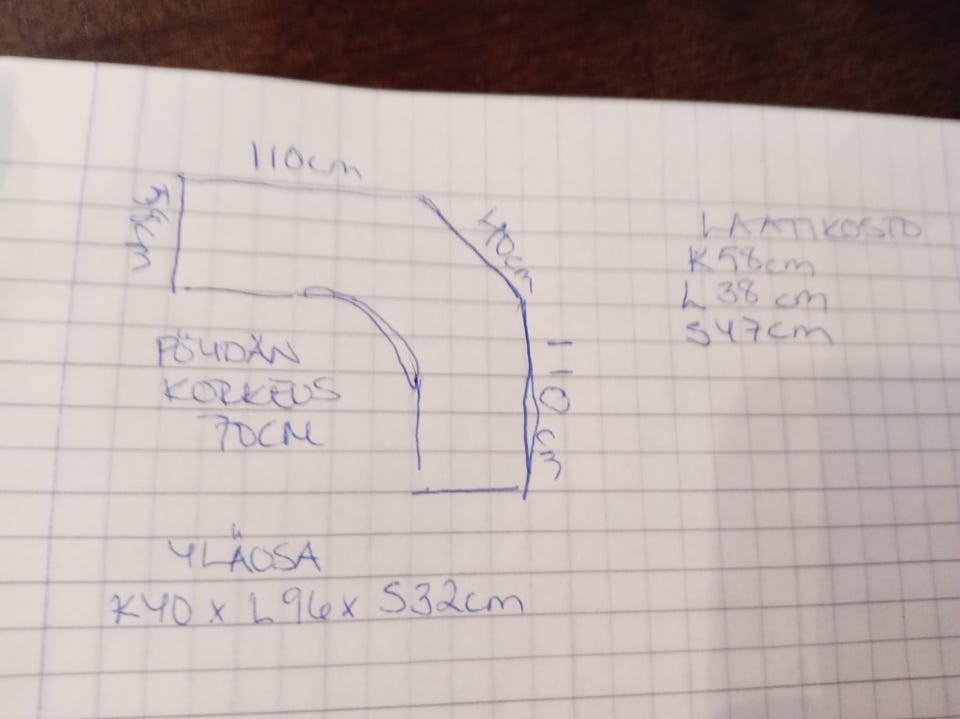 110cm
40cm
LAATIKOSTO
K58cm
L 38 cm
S47cm
PÖYDÄN
KORKEUS
70CM
110cm
YLÄOSA
K40 x L96 x S32cm